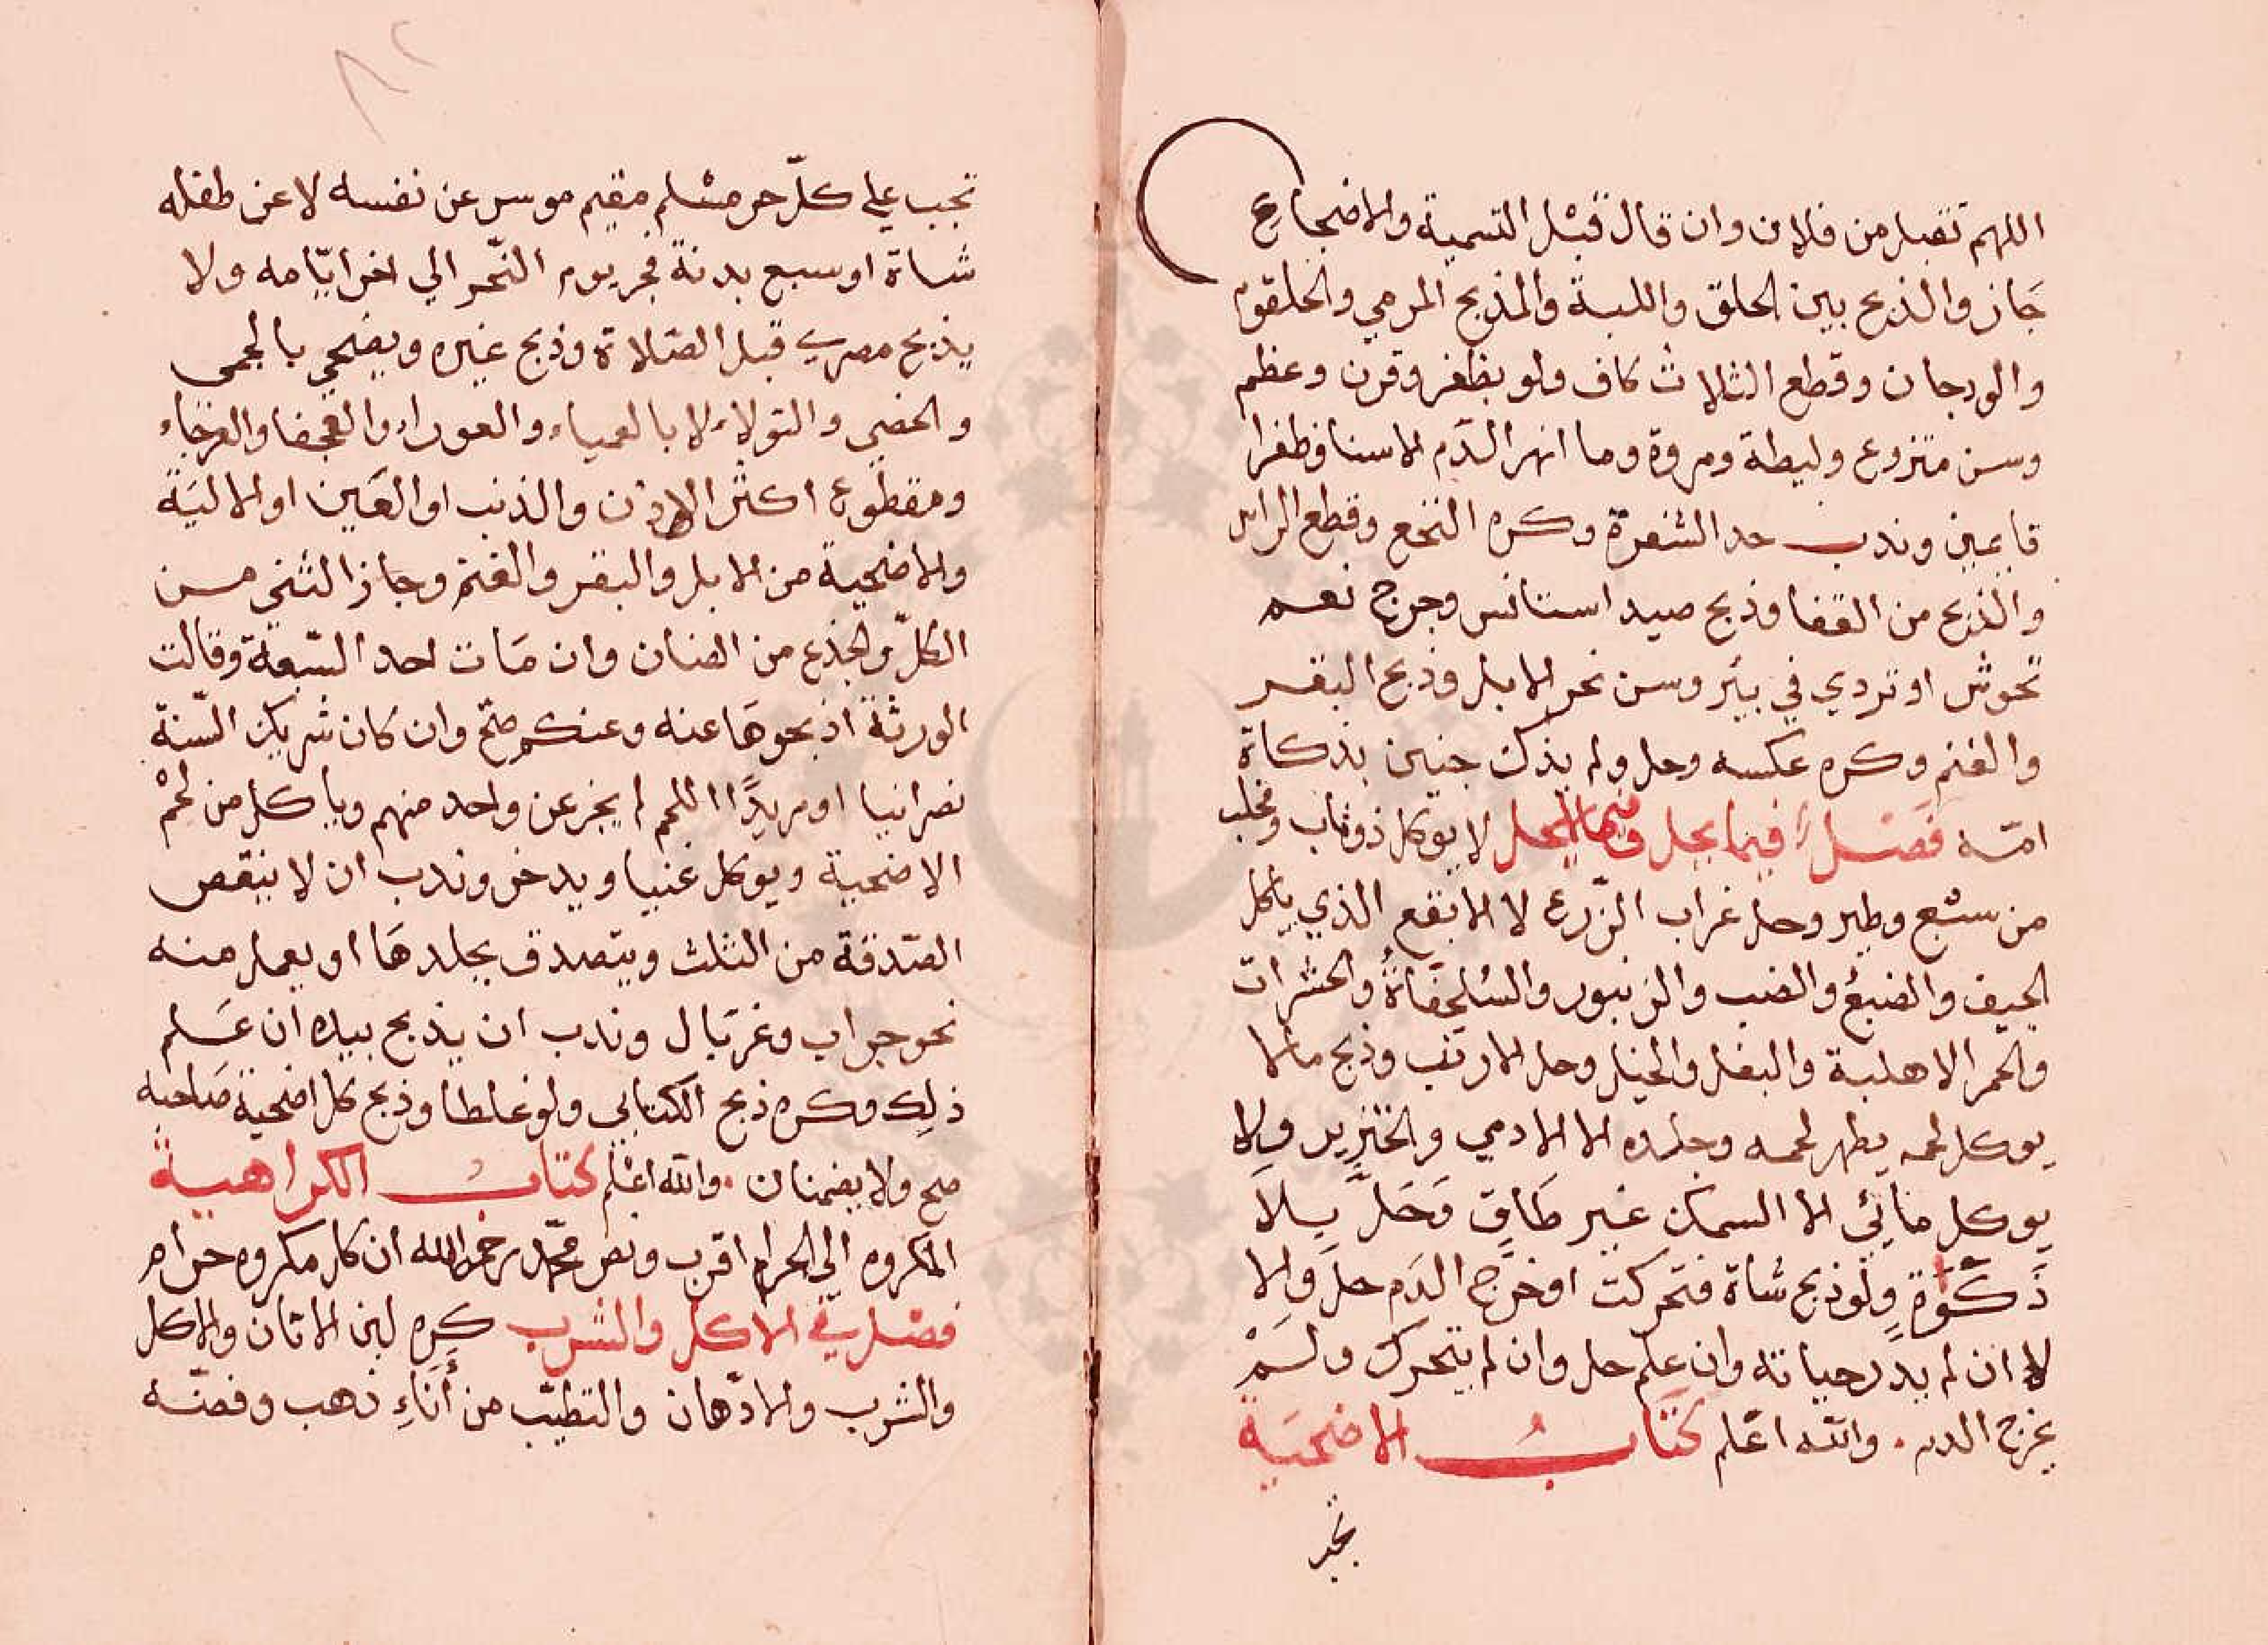 اللهم تقبل من فلان وان قال قبل التسمية والاضجاع
جَاز والذبح بين الحلق واللبة والمذبح المرمي والحلقوم
والودجان وقطع الثلاث كاف ولو بظفر وقرن وعظم
وسن منزوع وليطة ومروة وما انهر الدّم الا سنا وظفرا
قايمين وندب حد الشفرة وكره النخع وقطع الراس
والذبح من القفا وذبح صيد استانس وجرح نعم
توحش او تردي في بير وسن نحر الابل وذبح البقر
والغنم وكره عكسه وحل ولم يذك جنين بذكاة
امه فصل فيما يحل وفيما لايحل لا يوكل ذو ناب ومخلب
من سبع وطير وحل غراب الزّرع لا الابقع الذي ياكل
الجيف والضبع والضب والزنبور والسُلحفاةُ والحشرات
والحمر الاهلية والبغل والخيل وحل الارنب وذبح مالا
يوكل لحمه يطهر لحمه وجلده الا الادمي والخنزير ولا
يوكل مائي الا السمك غير طَافٍ وَحَلَّ بِلاَ
ذَكوٰةٍ ولو ذبح شاة فتحركت او خرج الدم حل والا
لا ان لم يدر حياته وان علم حل وان لم يتحرك ولمْ
يخرج الدم . والله اعلم كتابُ الاضحية
تجب
٨٢
تجب علي كلّ حر مسلم مقيم موسر عن نفسه لا عن طفله
شاة او سبع بدنة فجر يوم النّحر الي اخر ايّامه ولا
يذبح مصري قبل الصّلاة وذبح غيره ويضحي بالجمي
والخصي والتولاء لا بالعمياء والعوراء والعجفا والعرجاء
ومقطوع اكثر الاذن والذنب او العَين او الاليَة
والاضحية من الابل والبقر والغنم وجاز الثني من
الكلّ والجذع من الضان وان مَات احد السّبعة وقالت
الورثة اذبحوهَا عنه وعنكم صحّ وان كان شريك السّتة
نصرانيا او مريدًا اللحم لم يجز عن واحد منهم وياكل من لحمْ
الاضحية ويوكل غنيا ويدخر وندب ان لا ينقص
الصّدقة من الثلث ويتصدق بجلدهَا او يعمل منه
نحو جراب وغربَال وندب ان يذبح بيده ان عَلم
ذلك وكره ذبح الكتابي ولو غلطا وذبح كل اضحية صَاحبه
صح ولا يضمنان . والله اعلم كتابُ الكراهية
المكروه الي الحرام اقرب ونص محمّد رحمه الله ان كل مكروه حرام
فصل في الاكل والشرب كره لبن الاتان والاكل
والشرب والادّهان والتطيّب من أَنَاءِ ذهب وفضّه